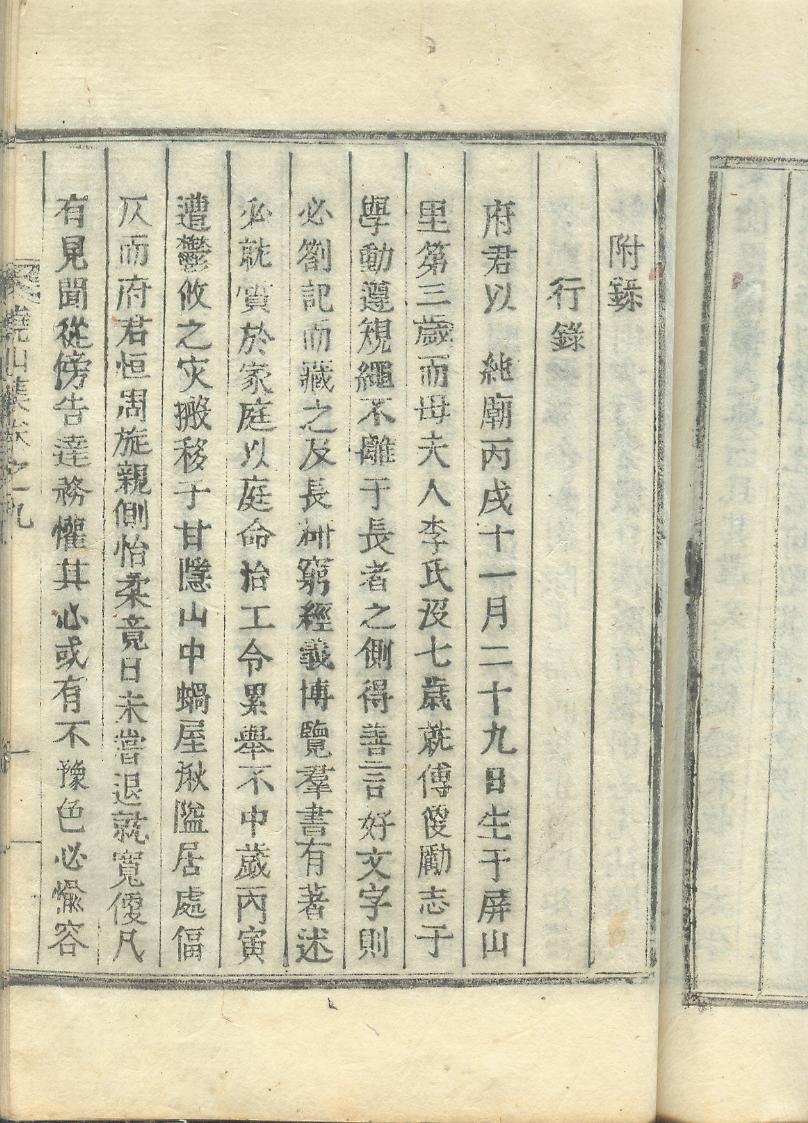 附錄
行錄
府君以 純廟丙戌十一月二十九日生于屏山
里第三歲而母夫人李氏沒七歲就傅便勵志于
學動遵規繩不離于長者之側得善言好文字則
必劄記而藏之及長硏窮經義博覽羣書有著述
必就實於家庭以庭命治工令累擧不中歲丙寅
遭鬱攸之灾搬移于甘隱山中蝸屋湫隘居處偪
仄而府君恒周旋親側怡柔竟日未嘗退就寬便凡
有見聞從傍告達務懽其心或有不豫色必愉容
曉山集卷之九 一